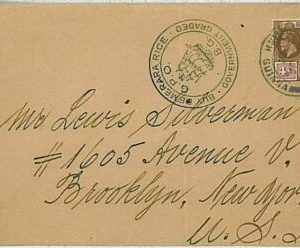 BUY DEMERARA RICE. GOVERNMENT GRADED
G.P.O.
B.G.
Mr Lewis Silverman
# 1605 Avenue V.
Brooklyn, New York
U.S.